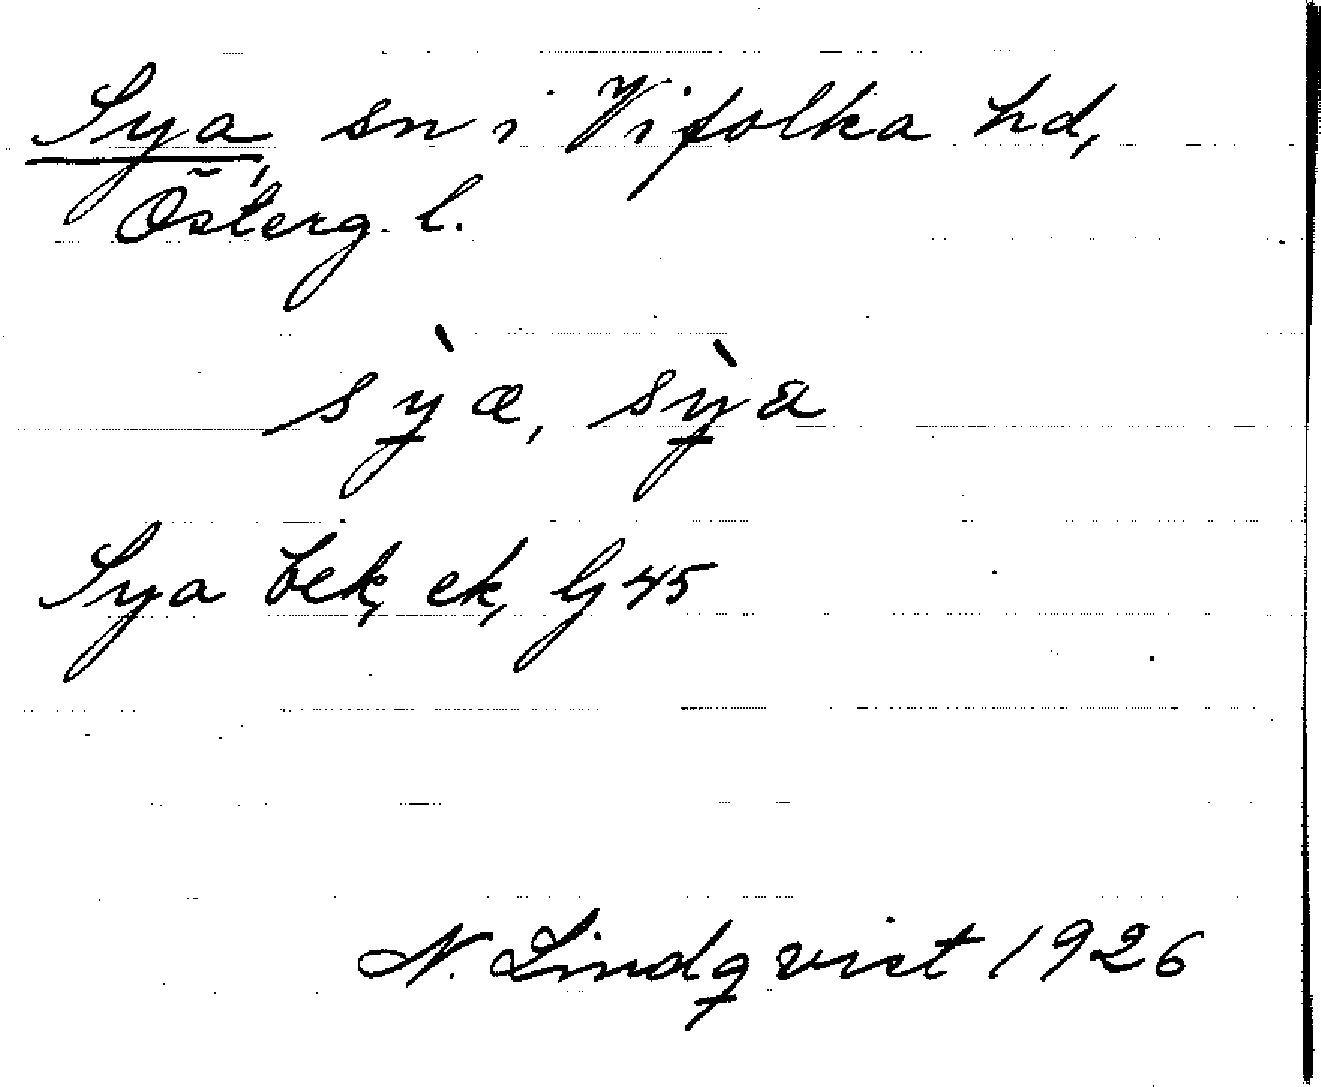 Sya, sn i Vifolka hd,
Österg. l.
sỳæ, sỳa
Sya bek, ek, G 45
N. Lindqvist 1926